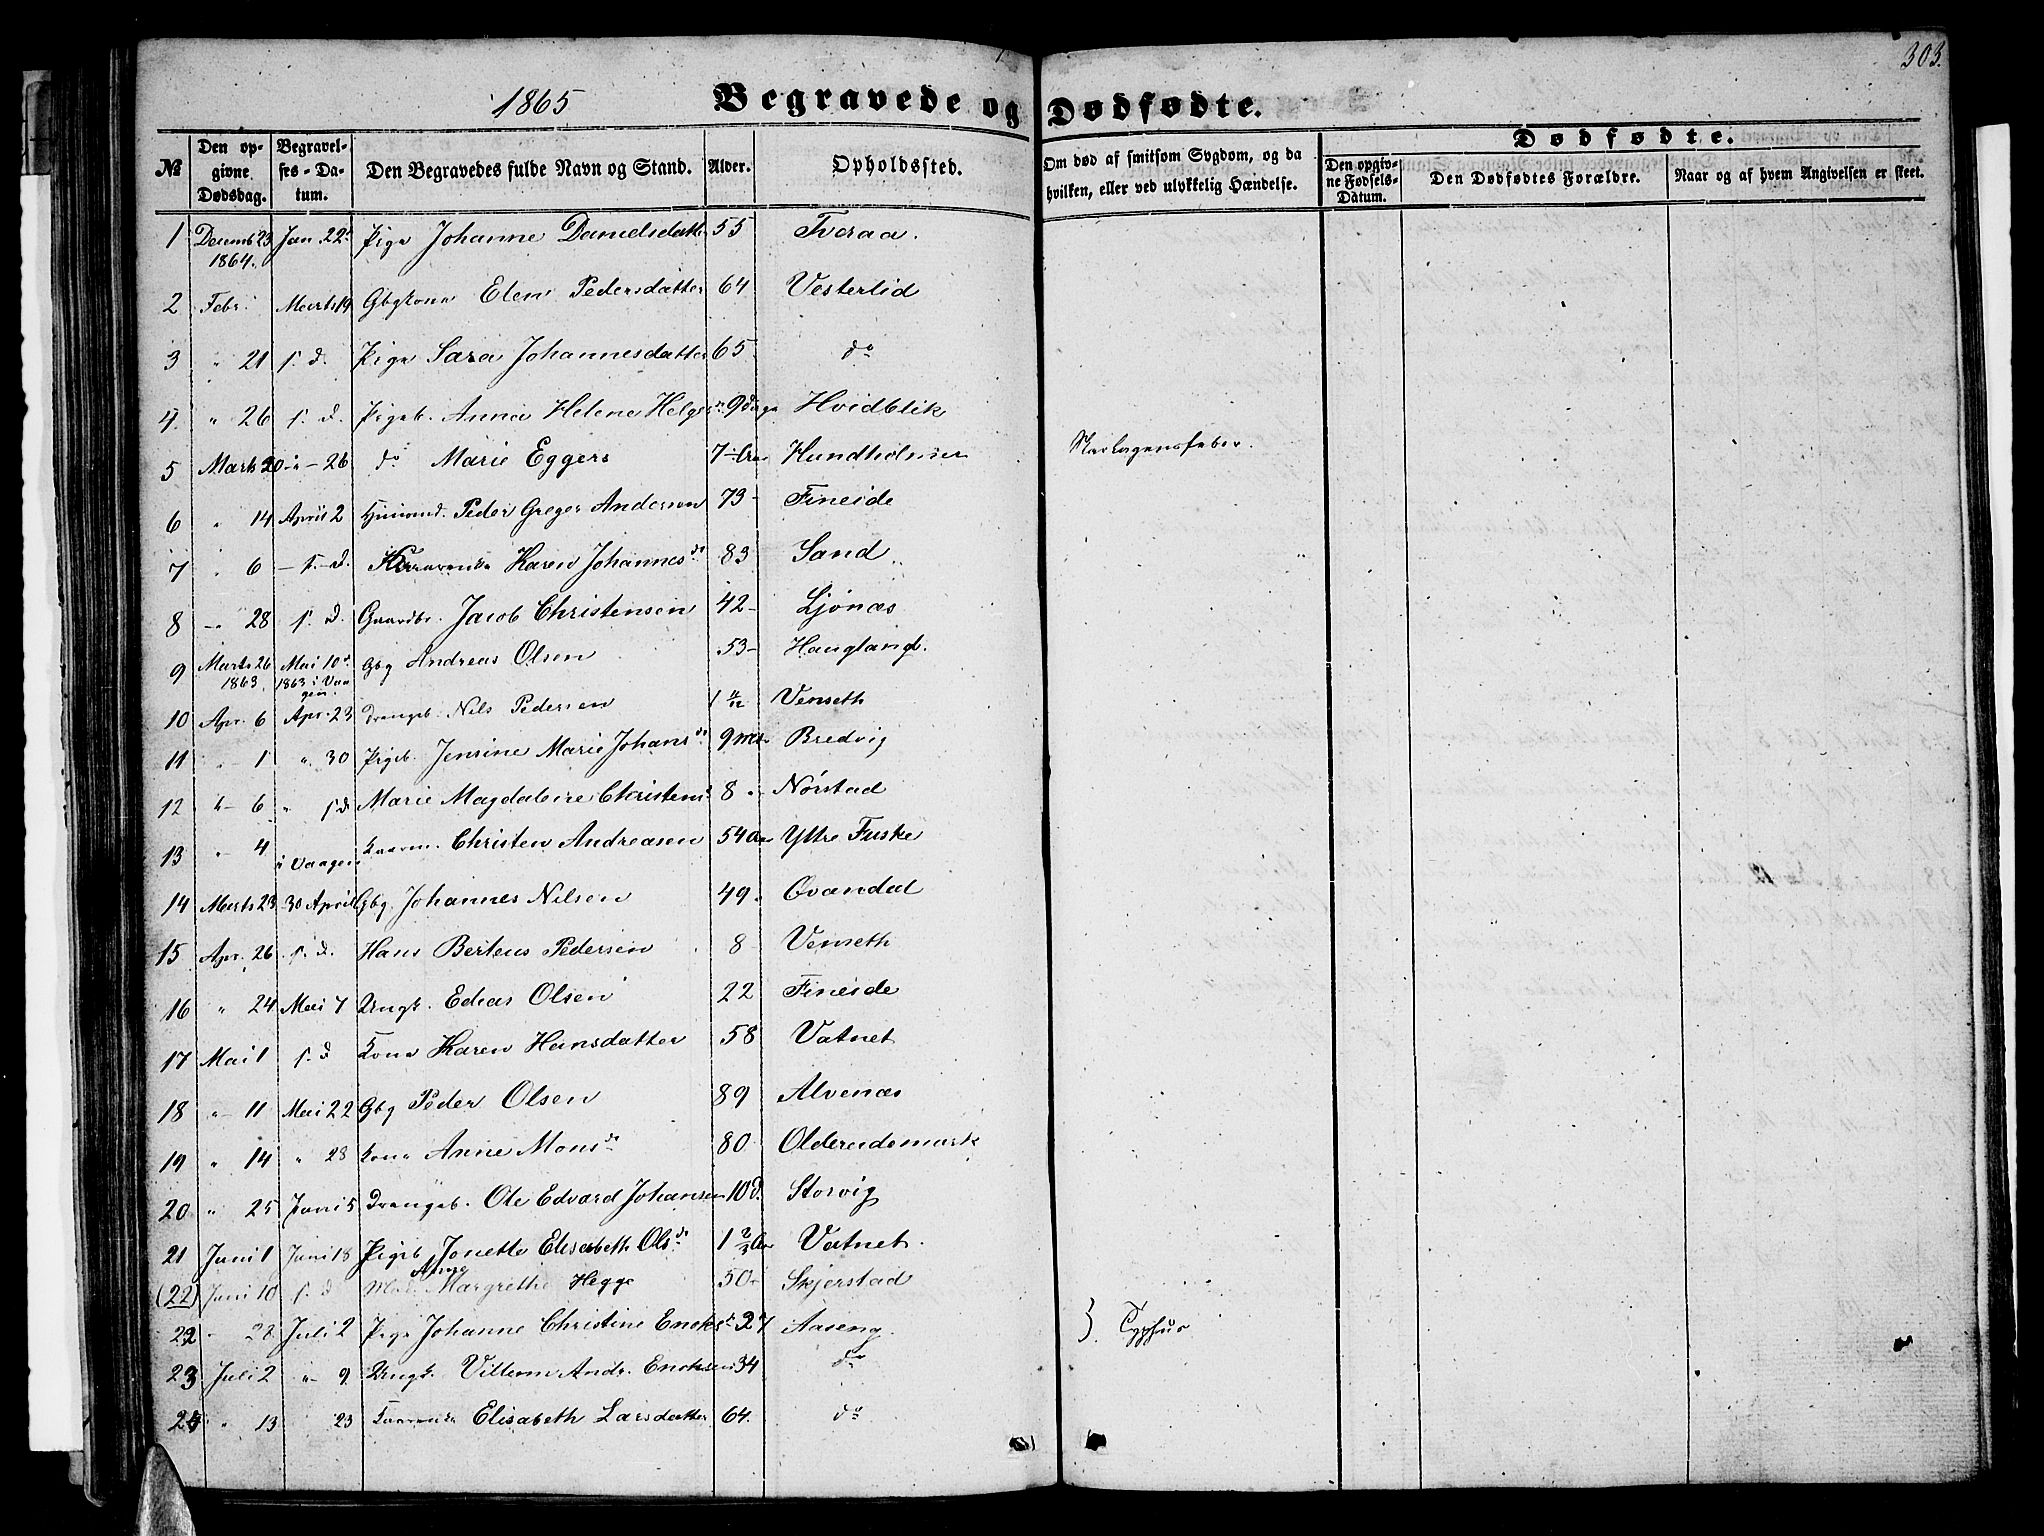 303.
1865 Begravede og Dødfødte.
Dødfødte.
№ Den opgivne Dødsdag. Begravelses-Datum. Den Begravedes fulde Navn og Stand. Alder. Opholdssted. Om død af smitsom Sygdom, og da hvilken, eller ved ulykkelig Hændelse. Den opgivne Fødsels-Datum. Den Dødfødtes Forældre. Naar og af hvem Angivelsen er skeet.
1 Decemb 23 1864. Jan. 22d Pige Johanne Danielsdatter 55 Tveraa.
2 Febr. Marts 19 Gbgkone Elen Pedersdatter 64 Vesterlid
3 " 21 s. d. Pige Sara Johannesdatter 65 do
4. " 26 s. d. Pigeb. Anna Helene 9 Dage Hvidblik
5 Marts 20 -"- 26 do Marie Eggers 7 Aar Hundholmen Skarlagensfeber.
6 " 14 April 2 Peder Greger Andersen 73 - Fineide
7 " 6 - s. d. Karen Johannesdr 83 Sand
8 -" 28 s. d. Gaardbr. Jacob Christensen 42 - Ljønæs
9 Marts 26 1863. Mai 10d 1863 i Vaagen Gbg Andreas Olsen 53 - Haugland.
10 Apr. 6 Apr. 23 Drengeb. Nils Pedersen 1 Venseth
11 " - 1 " 30 Pigeb. Jensine Marie Johansdr 9 Bredvig
12 " - 6 " s d Marie Magdalene Christens 8 " Nørstad
13 " - 4 i Vaagen Christen Andreasen 54 Aar Yttre Fuske
14 Marts 23 30 April Gbg. Johannes Nilsen 49. Qvandal
15 Apr. 26 s. d. Hans Berteus Pedersen 8 Venseth
16 " 24 Mai 7 Ungk. Edias Olsen 22 Fineide
17 Mai 1 s. d Kone Karen Hansdatter 58 Vatnet
18 " - 11 Mai 22 Gbg Peder Olsen 89 Alvenæs
19 " 14 " 28 Kone Anne Monsdr 80 Oldereidsmark
20 " 25 Juni 5 Drengeb. Ole Edvard Johansen 10 d. Storvig
21 Juni 1 Juni 18 Pigeb Jonette Elisabeth Olsdr 1 2/3 Aar Vatnet.
(22) Juni 10 s. d Mad. Anne Margrethe Hegge 50 Skjerstad
22 " 28 Juli 2 Pige Johanne Christine 27 Aaseng. }. Typhus
23 Juli 2 " 9 Ungk. Villum Andr. 34 do
24 " 13 " 23 Elisabeth Larsdatter 64. do